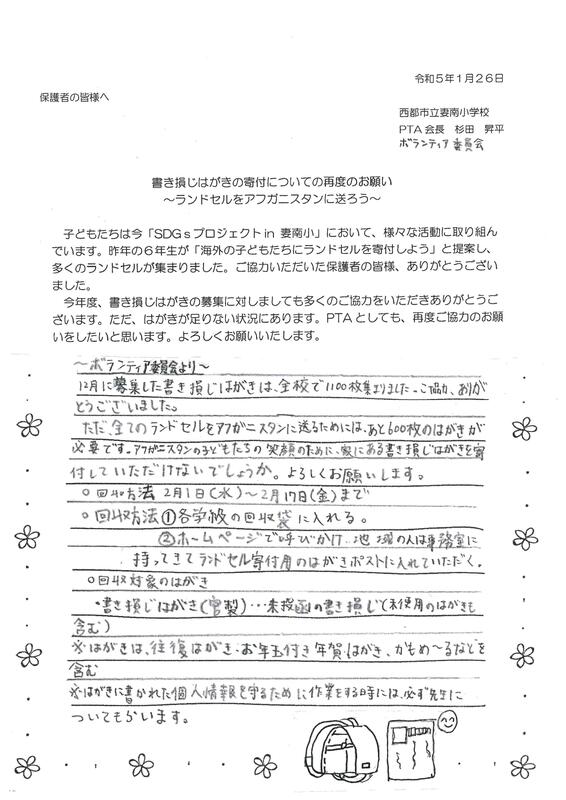 令和5年1月26日
保護者の皆様へ
西都市立妻南小学校
PTA会長　杉田　昇平
ボランティア委員会
書き損じはがきの寄付についての再度のお願い
～ランドセルをアフガニスタンに送ろう～
子どもたちは今「SDGsプロジェクトin 妻南小」において、様々な活動に取り組ん
でいます。昨年の6年生が「海外の子どもたちにランドセルを寄付しよう」と提案し、
多くのランドセルが集まりました。ご協力いただいた保護者の皆様、ありがとうござい
ました。
今年度、書き損じはがきの募集に対しましても多くのご協力をいただきありがとうご
ざいます。ただ、はがきが足りない状況にあります。PTAとしても、再度ご協力のお願
いをしたいと思います。よろしくお願いいたします。
～ボランティア委員会より～
12月に募集した書き損じはがきは、全校で1100枚集まりました。ご協力、ありが
とうございました。
ただ、全てのランドセルをアフガニスタンに送るためには、あと600枚のはがきが
必要です。アフガニスタンの子どもたちの笑顔のために、家にある書き損じはがきを寄
付していただけないでしょうか。よろしくお願いします。
○回収方法 2月1日(水)～2月17日(金)まで
○回収方法①各学級の回収袋に入れる。
②ホームページで呼びかけ、地域の人は事務室に
持ってきてランドセル寄付用のはがきポストに入れていただく。
○回収対象のはがき
・書き損じはがき(官製)…未投函の書き損じ(未使用のはがきも
含む)
※はがきは、往復はがき・お年玉付き年賀はがき、かもめ～るなどを
含む
※はがきに書かれた個人情報を守るために作業をする時には、必ず先生に
ついてもらいます。